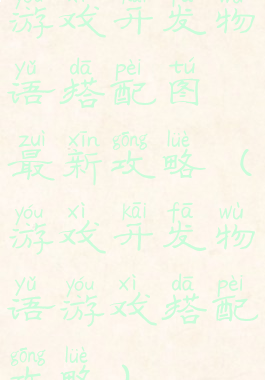 游戏开发物
yǔ dā pèi tú
语搭配图
zuì xīn gōng lüè
最新攻略（
yóu xì kāi fā wù
游戏开发物
yǔ yóu xì dā pèi
语游戏搭配
gōng lüè
攻略）